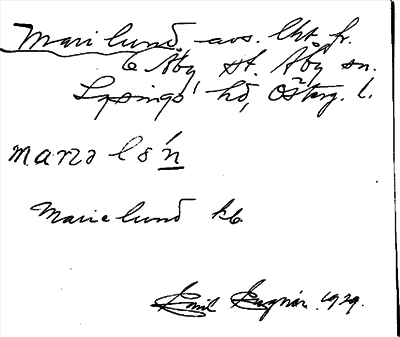 Marielund, avs. lht fr.
6 Åby, st. Åby sn.
Lysings hd, Österg. l.
Marielund kb
Emil 1929.